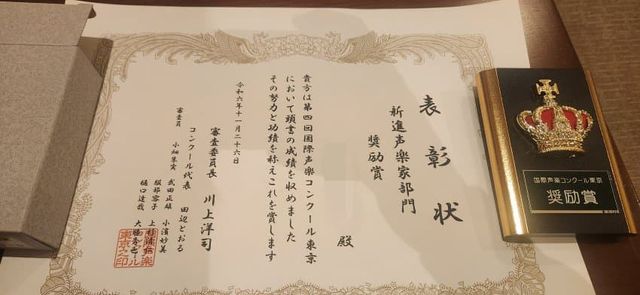 表彰状
新進声楽家部門
奨励賞
殿
貴方は第四回国際声楽コンクール東京
において頭書の成績を収めました
その努力と功績を称えこれを賞します
令和六年十一月二十六日
審査委員長 川上洋司
コンクール代表 田辺とおる
審査員
小畑朱実
武田正雄
小濱妙美
服部容子
上杉清仁
樋口達哉
国際声楽コンクール東京
奨励賞